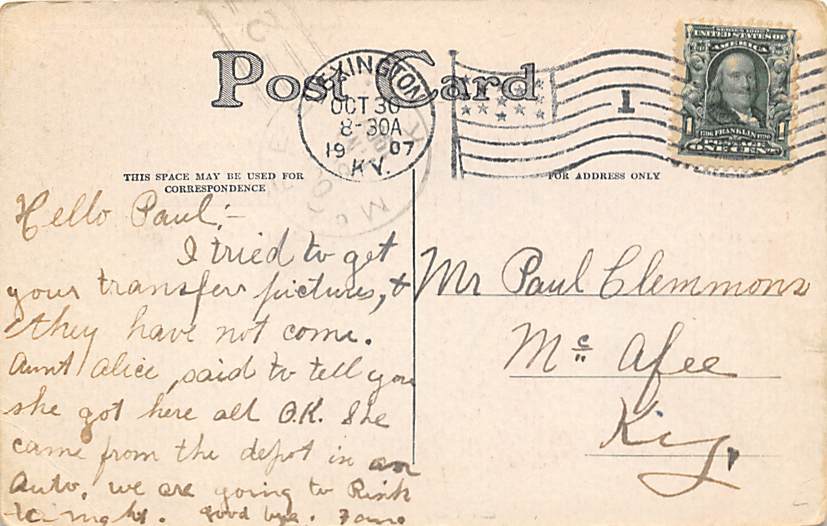 Post Card
LEXINGTON
OCT 30
8-30A
1907
KY.
1
SERIES 1902
UNITED STATES OF
AMERICA
1706 FRANKLIN 1790
POSTAGE
1 ONE CENT 1
THIS SPACE MAY BE USED FOR
CORRESPONDENCE
FOR ADDRESS ONLY
Hello Paul:-
I tried to get
your transfer pictures, &
they have not come.
Aunt Alice, said to tell you
she got here all O.K. She
came from the depot in an
Auto. we are going to Rink
to night. good bye.
Mr Paul Clemmons
Mc Afee
Ky.